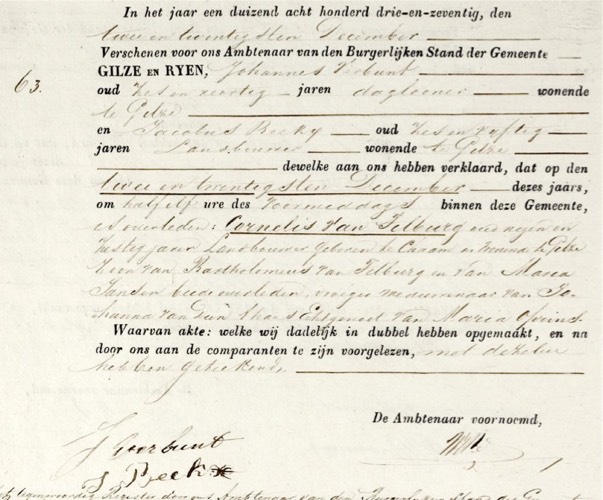 In het jaar een duizend acht honderd drie-en-zeventig, den
twee en twintigsten December
Verschenen voor ons Ambtenaar van den Burgerlijken Stand der Gemeente
GILZE EN RYEN, Johannes Verbunt
63.
oud zes en veertig jaren daglooner wonende
te Gilze
en Jacobus Beckx oud zes en vijftig
jaren Landbouwer wonende te Gilze
dewelke aan ons hebben verklaard, dat op den
twee en twintigsten December dezes jaars,
om half elf ure des voormiddags binnen deze Gemeente,
is overleden: Cornelis van Tilburg oud negen en
zestig jaar Landbouwer geboren te Chaam en wonend te Gilze
zoon van Bartholomeus van Tilburg en van Maria
Jansen beide overleden, vroeger weduwnaar van Jo-
hanna van thans Echtgenoot van Maria
Waarvan akte: welke wij dadelijk in dubbel hebben opgemaakt, en na
door ons aan de comparanten te zijn voorgelezen, met dezelve
hebben geteekend.
De Ambtenaar voornoemd,
J Voorbunt
J Beckx